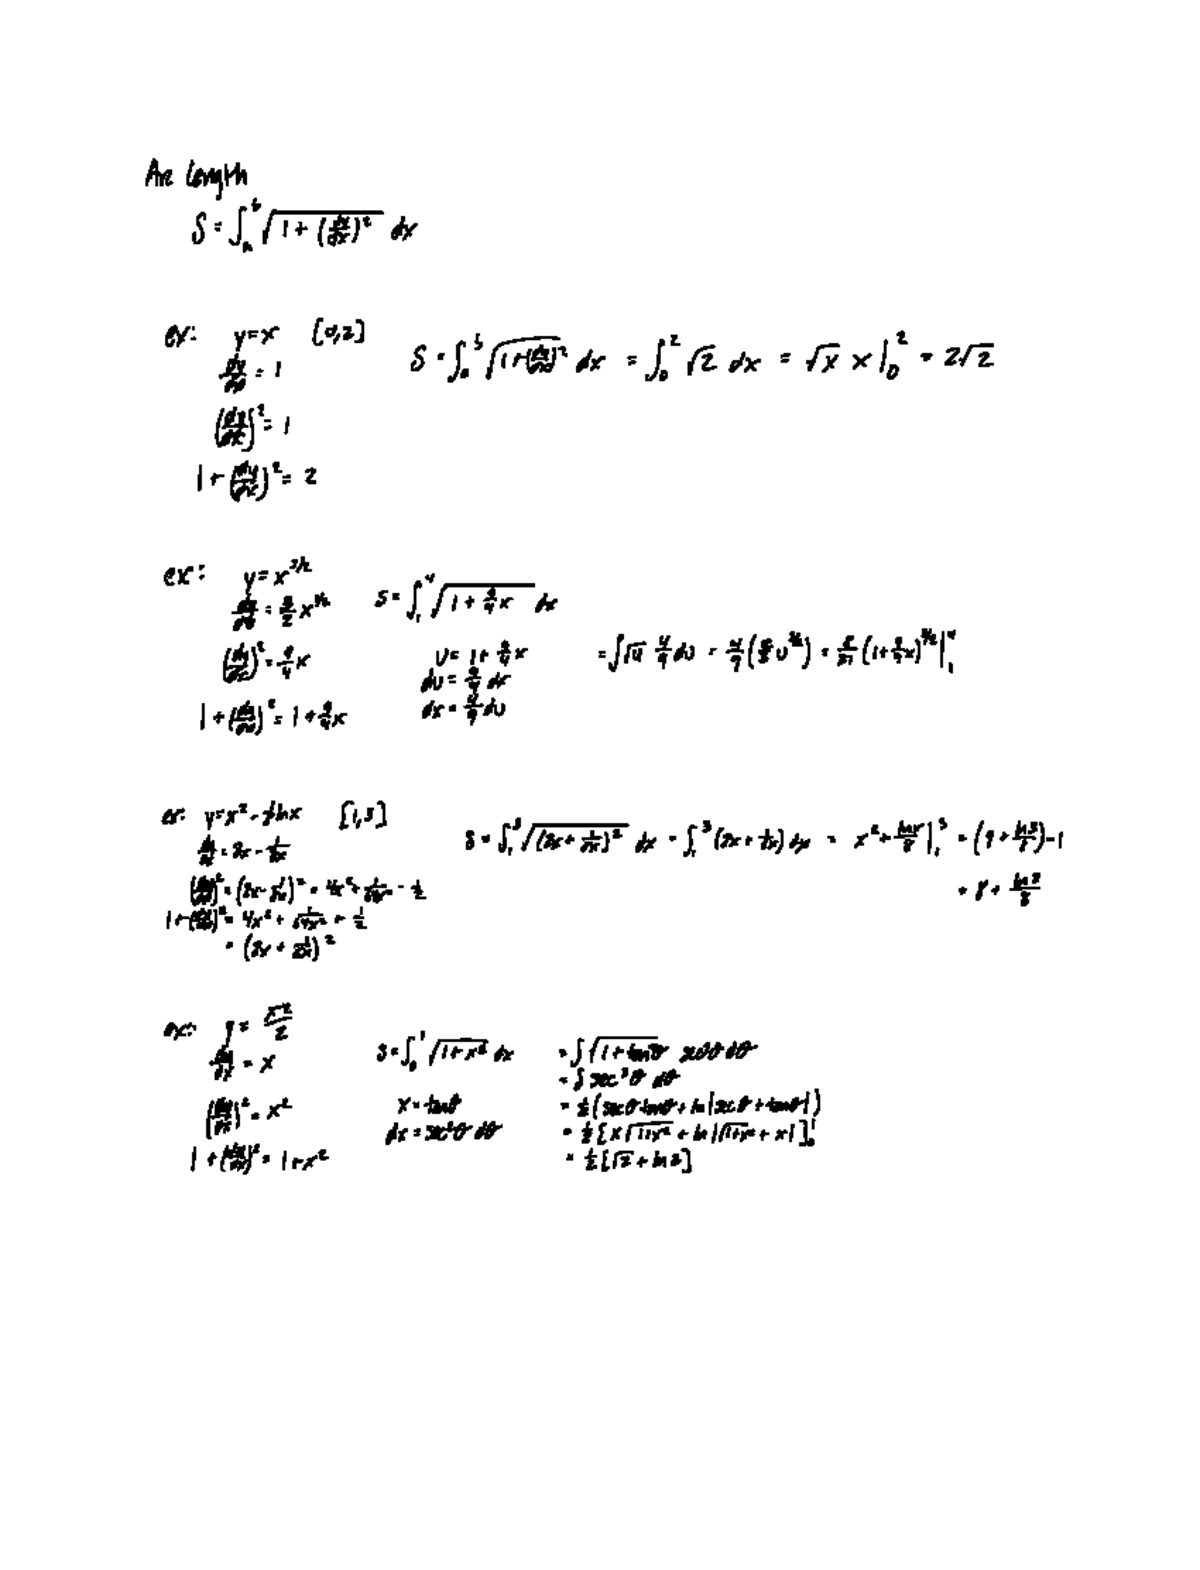 Arc Length
S = ∫_a^b √(1 + (dy/dx)²) dx
ex: y = x [0,2]
dy/dx = 1
(dy/dx)² = 1
1 + (dy/dx)² = 2
S = ∫_a^b √(1 + (dy/dx)²) dx = ∫_0^2 √2 dx = √x x |_0^2 = 2√2
ex: y = x^(3/2)
dy/dx = 3/2 x^(1/2)
(dy/dx)² = 9/4 x
1 + (dy/dx)² = 1 + 9/4 x
S = ∫_1^4 √(1 + 9/4 x) dx
u = 1 + 9/4 x
du = 9/4 dx
dx = 4/9 du
= ∫√u 4/9 du = 4/9 (2/3 u^(3/2)) = 8/27 (1 + 9/4 x)^(3/2) |_1^4
ex: y = x² - 1/8 ln x [1,3]
dy/dx = 2x - 1/8x
(dy/dx)² = (2x - 1/8x)² = 4x² + 1/64x² - 1/2
1 + (dy/dx)² = 4x² + 1/64x² + 1/2
= (2x + 1/8x)²
S = ∫_1^3 √((2x + 1/8x)²) dx = ∫_1^3 (2x + 1/8x) dx = x² + ln x/8 |_1^3 = (9 + ln 3/8) - 1
= 8 + ln 3/8
ex: y = x²/2
dy/dx = x
(dy/dx)² = x²
1 + (dy/dx)² = 1 + x²
S = ∫_0^1 √(1 + x²) dx
x = tanθ
dx = sec²θ dθ
= ∫√(1 + tan²θ) sec²θ dθ
= ∫ sec³θ dθ
= 1/2 (secθ tanθ + ln|secθ + tanθ|)
= 1/2 [x√(1+x²) + ln|√(1+x²) + x|]_0^1
= 1/2 [√2 + ln 2]